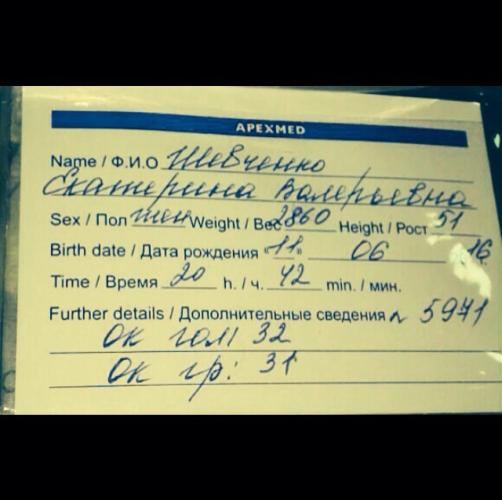 APEXMED
Name / Ф.И.О Шевченко
Екатерина Валерьевна
Sex / Пол жен Weight / Вес 2860 Height / Рост 51
Birth date / Дата рождения «11» 06 16
Time / Время 20 h. / ч. 42 min. / мин.
Further details / Дополнительные сведения л 5971
ок гол: 32
ок гр: 31